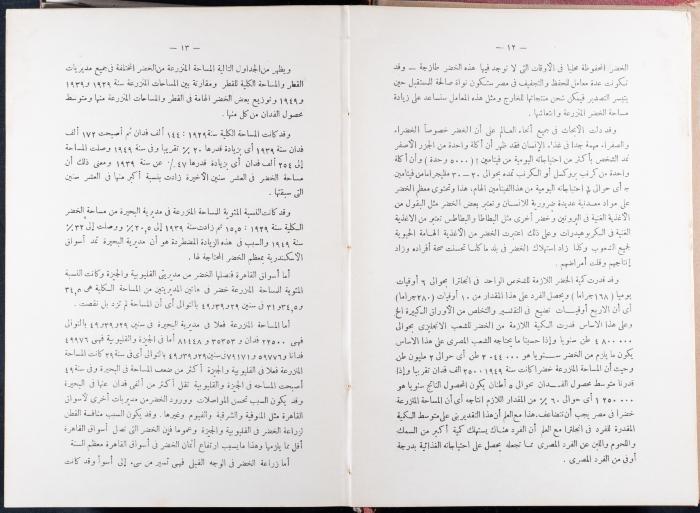 — ١٢ —
الخضر المحفوظة محليا فى الأوقات التى لا توجد فيها هذه الخضر طازجة — وقد
تكونت عدة معامل للحفظ والتجفيف فى مصر ستكون نواة صالحة للمستقبل حين
يتيسر التصدير فيمكن شحن منتجاتها للخارج ومثل هذه المعامل ستساعد على زيادة
مساحة الخضر المزروعة وانتعاشها .
وقد دلت الابحاث فى جميع أنحاء العالم على أن الخضر خصوصا الخضراء
والصفراء مهمة جدا فى غذاء الإنسان فقد ظهر أن أكلة من الجزر الأصفر
تمد الشخص بأكثر من احتياجاته اليومية من فيتامين ا (٥٠٠٠ وحدة) وأن أكلة
من كرنب بروكسل أو الكرنب تمده بحوالى ٢٠ — ٣٠ ملليجرام من فيتامين
ج أى حوالى لم احتياجاته اليومية من هذا الفيتامين الهام، هذا وتحتوى معظم الخضر
على مواد معدنية عديدة ضرورية للانسان وتعتبر بعض الخضر مثل البقول من
الأغذية الغنية فى البروتين وخضر أخرى مثل البطاطا والبطاطس تعتبر من الاغذية
الغنية فى الكربوهيدرات وعلى ذلك اعتبرت الخضر من الأغذية الهامة الحيوية
لجميع الشعوب وكلما زاد استهلاك الخضر فى بلد ما كلما تحسنت صحة أفراده وزاد
إنتاجهم وقلت أمراضهم .
وقد قدرت كمية الخضر اللازمة للشخص الواحد فى انجلترا بحوالى ٦ أوقيات
يوميا (١٦٨ جراما) ويحصل الفرد على هذا المقدار من ١٠ أوقيات (٢٨٠ جراما)
أى أن الاربع أوقيات تضيع فى التقشير والتخلص من الأوراق الكبيرة الخ
وعلى هذا الاساس قدرت الكمية اللازمة من الخضر للشعب الانجليزى بحوالى
٤٨٠٠٠٠٠ طن سنويا وإذا حسبنا ما يحتاجه الشعب المصرى على هذا الأساس
يكون ما يلزم من الخضر سنويا هو ٢٠٤٤٠٠٠ طن أى حوالى ٢ مليون طن
وحيث أن المساحة المزروعة خضرا كانت سنة ١٩٤٩ ٢٥٠٠٠٠ ألف فدان تقريبا وإذا
قدرنا متوسط محصول الفدان بحوالى ٥ أطنان يكون المحصول الناتج سنويا هو
١٢٥٠٠٠٠ أى حوالى ٦٠ ٪ من المقدار اللازم انتاجه أى أن المساحة المزروعة
خضرا فى مصر يجب أن تتضاعف. هذا مع العلم أن هذا التقدير بنى على متوسط الكمية
المقدرة للفرد فى انجلترا مع العلم أن الفرد هناك يستهلك كمية أكبر من السمك
واللحوم واللبن عن الفرد المصرى مما تجعله يحصل على احتياجاته الغذائية بدرجة
أوفى من الفرد المصرى .
— ١٣ —
ويظهر من الجداول التالية المساحة المزرعة من الخضر المختلفة فى جميع مديريات
القطر والمساحة الكلية للقطر ومقارنة بين المساحات المنزرعة سنة ١٩٢٩ و ١٩٣٩
و ١٩٤٩ وتوزيع بعض الخضر الهامة فى القطر والمساحات المنزرعة منها ومتوسط
محصول الفدان من كل منها .
وقد كانت المساحة الكلية سنة ١٩٢٩ : ١٤٤ ألف فدان ثم أصبحت ١٧٢ ألف
فدان سنة ١٩٣٩ أى بزيادة قدرها ٢٠ ٪ تقريبا وفى سنة ١٩٤٩ وصلت المساحة
إلى ٢٥٤ ألف فدان أى بزيادة قدرها ٤٧ ٪ عن سنة ١٩٣٩ ومعنى ذلك أن
مساحة الخضر فى العشر سنين الأخيرة زادت بنسبة أكبر منها فى العشر سنين
التى سبقتها .
وقد كانت النسبة المئوية للمساحة المنزرعة فى مديرية البحيرة من مساحة الخضر
الكلية سنة ١٩٢٩ : ١٥,٥ ثم زادت سنة ١٩٣٩ إلى ٢٠,٥ ٪ ووصلت إلى ٣٢ ٪
سنة ١٩٤٩ والسبب فى هذه الزيادة المضطردة هو أن مديرية البحيرة تمد أسواق
الاسكندرية بمعظم الخضر المحتاجة لها .
أما أسواق القاهرة فتصلها الخضر من مديرتى القليوبية والجيزة وكانت النسبة
المئوية للمساحة المزروعة خضر فى هاتين المديريتين من المساحة الكلية هى ٣٤,٥
و٣٤,٥ و٣١ فى سنين ٢٩ و٣٩ و٤٩ بالتوالى أى أن المساحة لم تزد بل نقصت .
أما المساحة المنزرعة فعلا فى مديرية البحيرة فى سنين ٢٩ و٣٩ و٤٩ بالتوالى
فهى ٢٢٥٠٠ فدان و ٣٥٣٥٣ و ٨١٤٤٨ أما فى الجيزة والقليوبية فهى ٤٩٩٧٦
فدانا و ٥٩٧٧٦ و ٧٩١٧١ فى سنين ٢٩ و٣٩ و٤٩ بالتوالى أى فى سنة ٣٩ كانت المساحة
المزرعة فعلا فى القليوبية والجيزة أكثر من ضعف المساحة فى البحيرة وفى سنة ٤٩
أصبحت المساحه فى الجيزة والقليوبية تقل أكثر من ألفى فدان عنها فى البحيرة
وقد يكون السبب تحسن المواصلات وورود الخضر من مديريات أخرى لأسواق
القاهرة مثل المنوفية والشرقية والفيوم وغيرها . وقد يكون السبب منافسة القطن
لزراعة الخضر فى القليوبية والجيزة وعموما فإن الخضر التى تصل أسواق القاهرة
أقل مما يلزمها وهذا ما يسبب ارتفاع أثمان الخضر فى أسواق القاهرة معظم السنة
أما زراعة الخضر فى الوجه القبلى فهى تسير من سىء إلى أسوأ وقد كانت